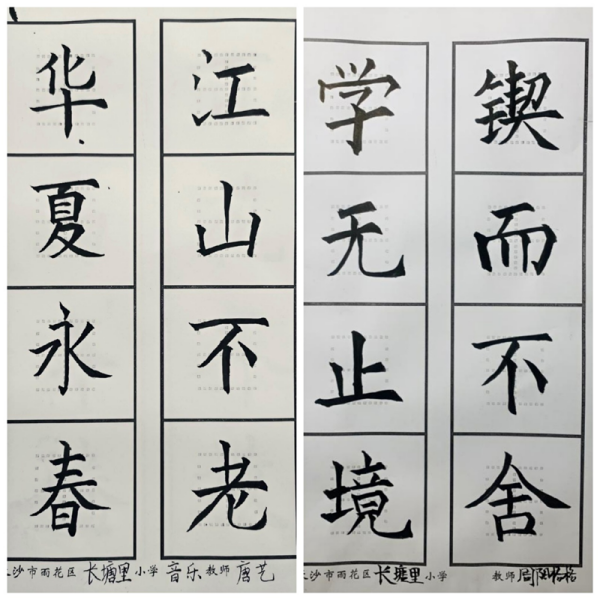 江山不老
华夏永春
沙市雨花区长塘里小学 音乐教师 唐艺
锲而不舍
学无止境
沙市雨花区长塘里小学 教师